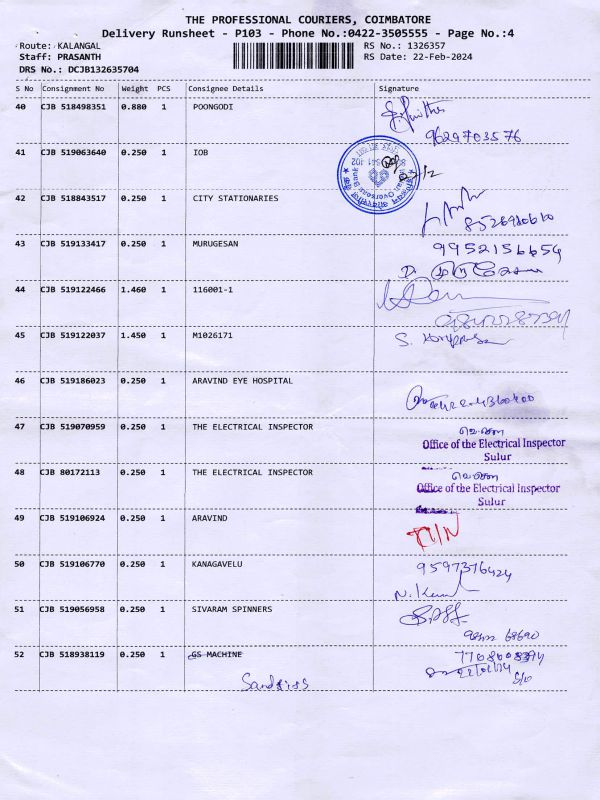 THE PROFESSIONAL COURIERS, COIMBATORE
Delivery Runsheet - P103 - Phone No.:0422-3505555 - Page No.:4
Route: KALANGAL RS No.: 1326357
Staff: PRASANTH RS Date: 22-Feb-2024
DRS No.: DCJB132635704
S No Consignment No Weight PCS Consignee Details Signature
40 CJB 518498351 0.880 1 POONGODI
9629703576
41 CJB 519063640 0.250 1 IOB
42 CJB 518843517 0.250 1 CITY STATIONARIES
43 CJB 519133417 0.250 1 MURUGESAN 9952156654
44 CJB 519122466 1.460 1 116001-1
45 CJB 519122037 1.450 1 M1026171
46 CJB 519186023 0.250 1 ARAVIND EYE HOSPITAL
47 CJB 519070959 0.250 1 THE ELECTRICAL INSPECTOR
Office of the Electrical Inspector
Sulur
48 CJB 80172113 0.250 1 THE ELECTRICAL INSPECTOR
Office of the Electrical Inspector
Sulur
49 CJB 519106924 0.250 1 ARAVIND
50 CJB 519106770 0.250 1 KANAGAVELU 9597376424
51 CJB 519056958 0.250 1 SIVARAM SPINNERS
52 CJB 518938119 0.250 1 GS MACHINE